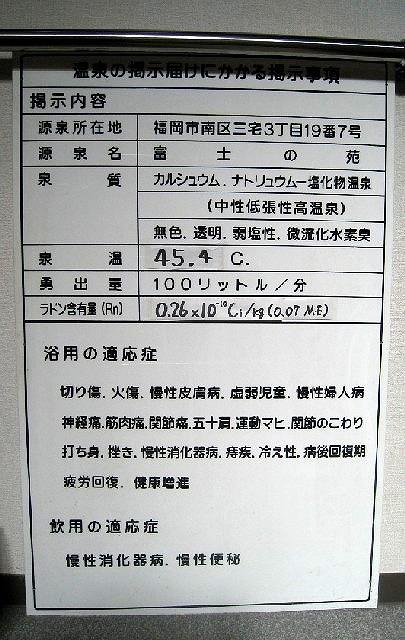 温泉の掲示届けにかかる掲示事項
掲示内容
源泉所在地 福岡市南区三宅3丁目19番7号
源泉名 富士の苑
泉質 カルシュウム．ナトリュウム一塩化物温泉
(中性低張性高温泉)
無色．透明．弱塩性．微流化水素臭
泉温 45.4 C.
勇出量 100リットル／分
ラドン含有量(Rn) 0.26×10⁻¹⁰Ci/kg(0.07M.E)
浴用の適応症
切り傷．火傷．慢性皮膚病．虚弱児童．慢性婦人病
神経痛.筋肉痛.関節痛.五十肩.運動マヒ.関節のこわり
打ち身．挫き．慢性消化器病．痔疾．冷え性．病後回復期
疲労回復．健康増進
飲用の適応症
慢性消化器病．慢性便秘